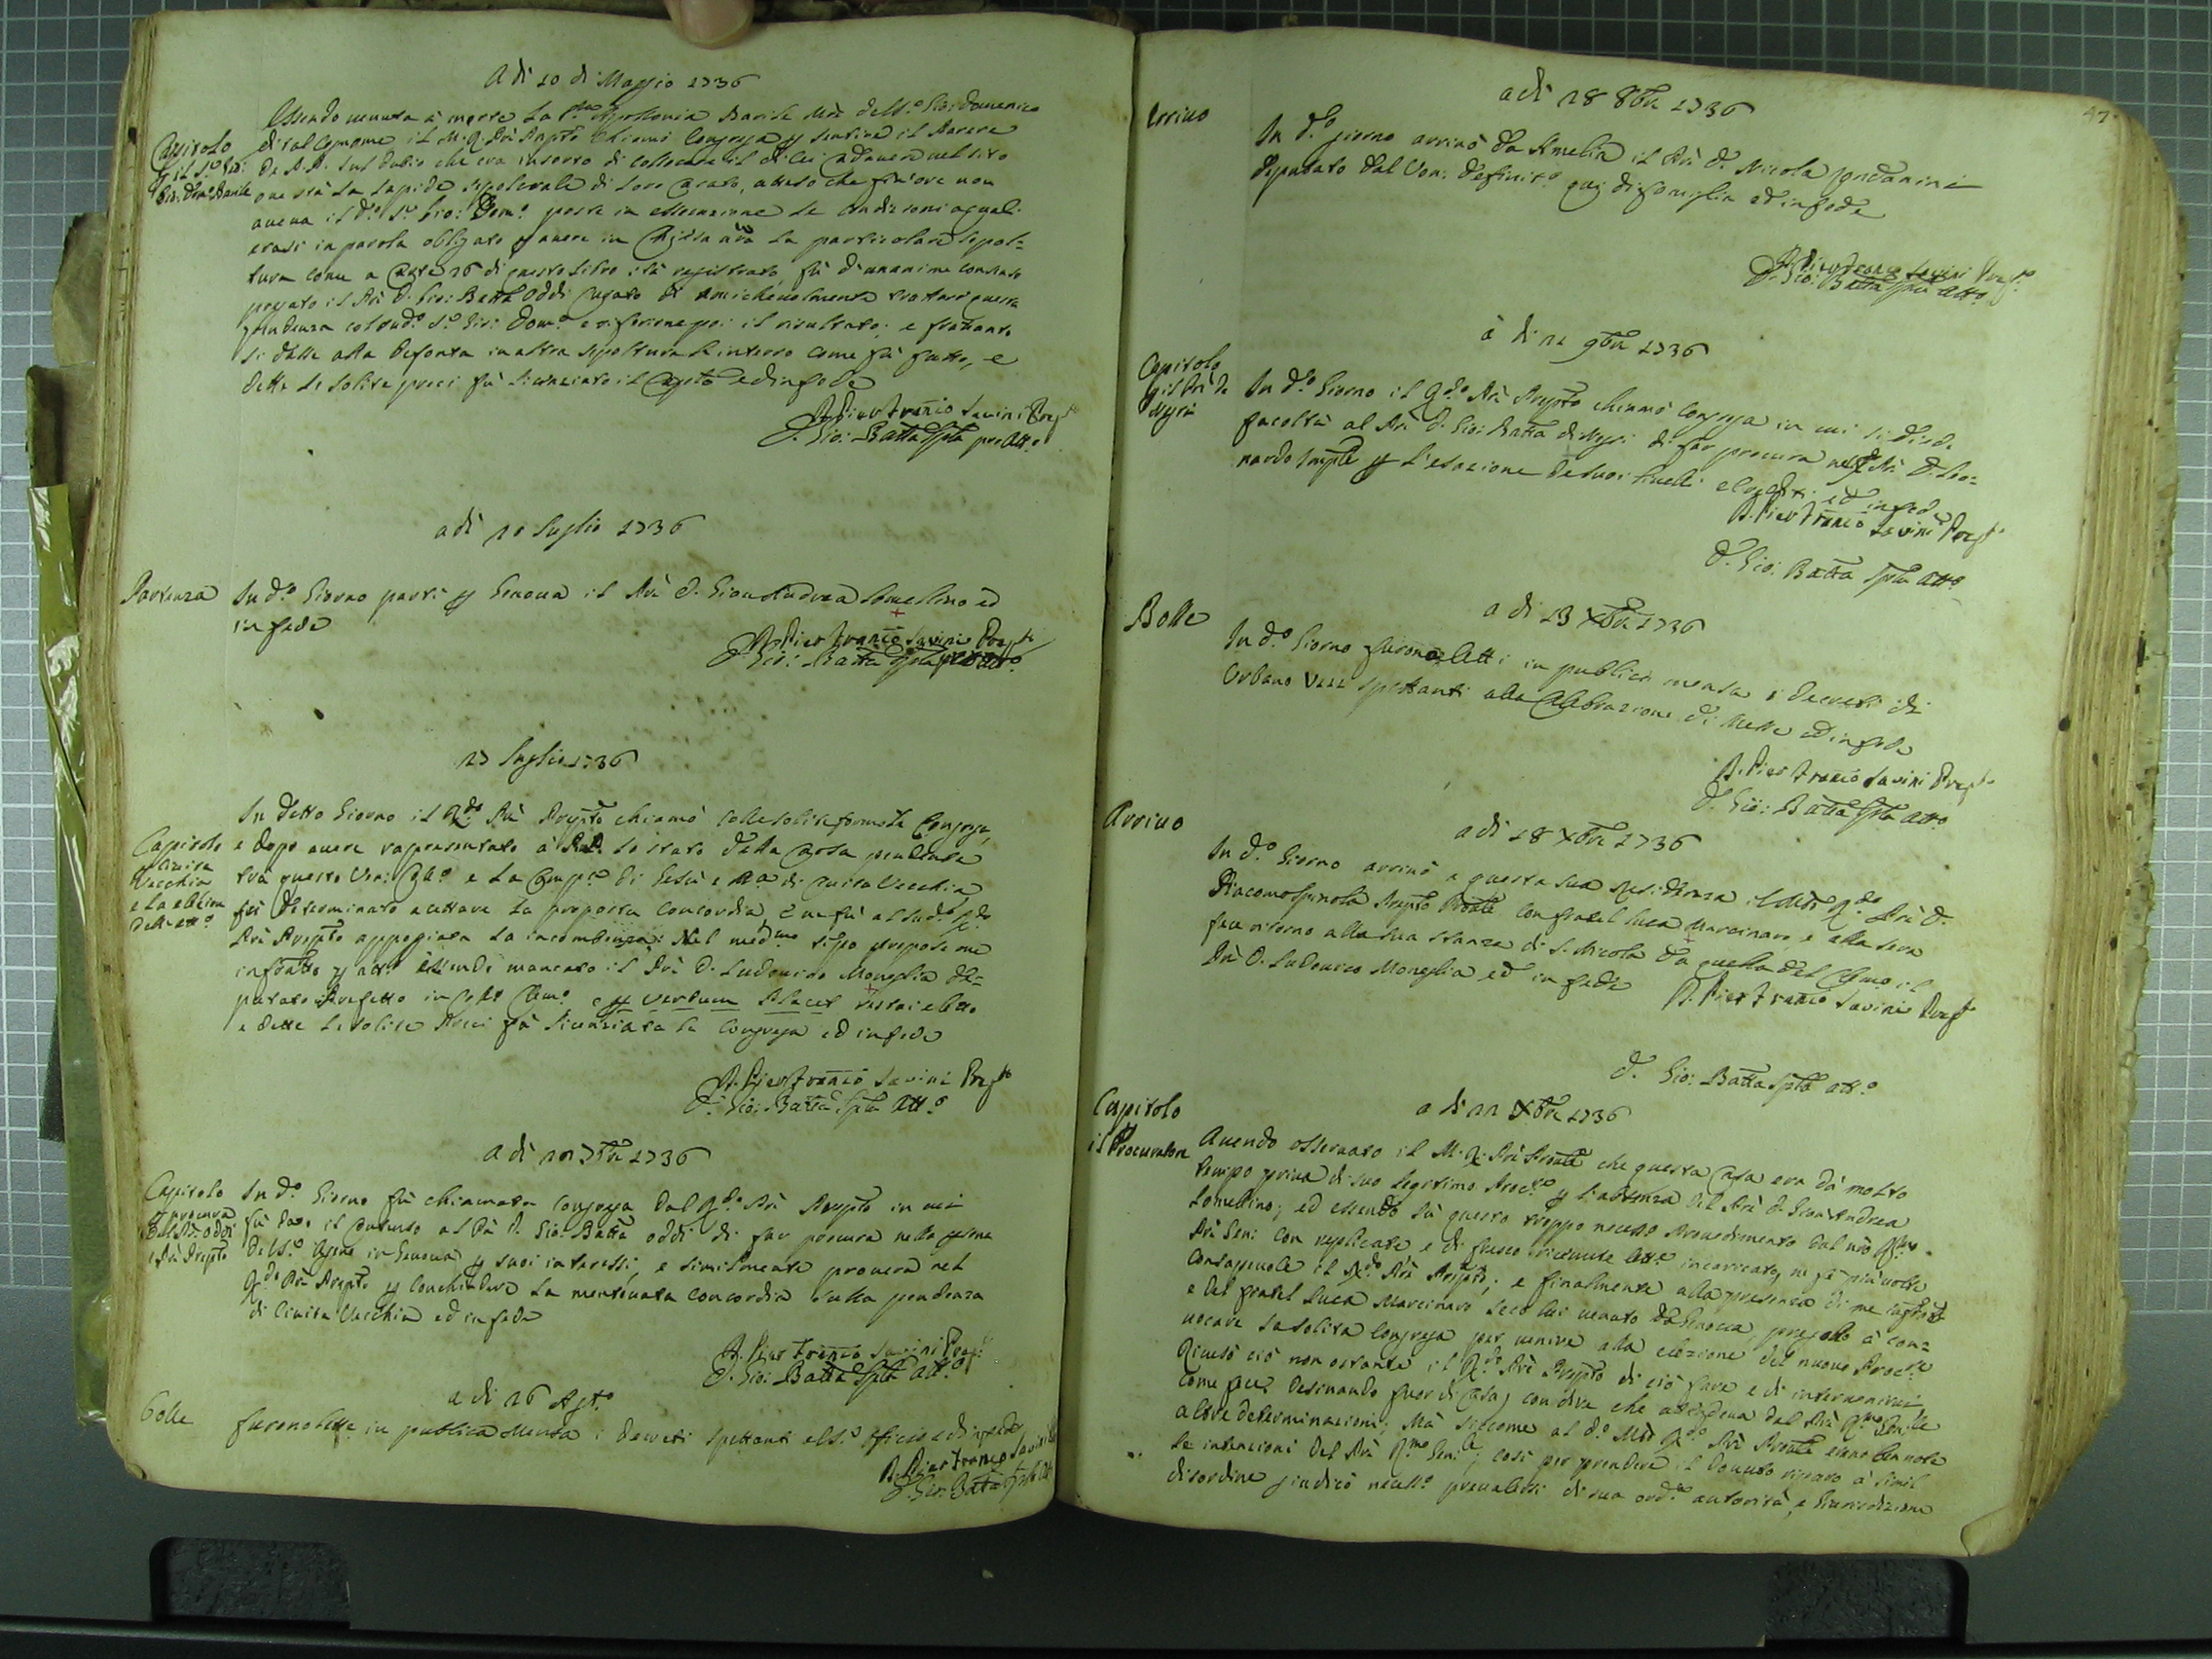 A dì 10 di Maggio 1736
Essendo venuta à morte la Apollonia Barile del S.r Gio: Domenico
Capitolo
di tal Cognome il M. R. Prè Prepto chiamò Congrega sentire il Parere
de P.P. sul dubio che era insorto di collocare il di lei cadavere nel sito
ove stà la lapide sepolcrale di loro Casato, atteso che fin'ora non
aveva il d.o S.r Gio: Dom.o poste in essecuzione le condizioni a quali
erasi in parola obligato avere in Chiesa nra la particolare sepol=
tura come a Carte 26 di questo Libro stà registrato fù di unanime consenso
pregato il Prè D. Gio: Batta Oddi di amichevolmente trattare questa
pendenza col sud.o S.r Gio: Dom.o e riferirne poi il risultato: e frattanto
si dasse alla Defonta in altra sepoltura l'interro come fù fatto, e
dette le solite preci fù licenziato il Capto ed in fede
D. Pier Franco Savini Prepto
D. Gio: Batta Spla pro Att.o
a dì 20 luglio 1736
Partenza
In d.o Giorno partì Genova il Prè D. Gian Andrea Lomellino ed
in fede
D. Pier Franco Savini Prepto
D. Gio: Batta Spla pro Att.o
27 luglio 1736
In detto Giorno il R.do Prè Prepto chiamò colle solite formole Congrega,
Capitolo
Civita
Vecchia
e la elezione
dell'att.o
e dopo avere rappresentato à P.P. lo stato della Causa pendente
trà questo Ven: Coll.o e la Comp.a di Gesù e M.a di Civita Vecchia
fù determinato accettare la proposta concordia, e ne fù al sud.o R.do
Prè Prepto appogiata la incombenza: Nel med.mo propose me
infratto att.o essendo mancato il Prè D. Ludovico Moneglia de=
putato Prefetto in Clem.o e verbum placet restai eletto
e dette le solite Preci fù licenziata la Congrega ed in fede
D. Pier Franco Savini Prepto
D. Gio: Batta Spla Att.o
A dì 7bre 1736
Capitolo
procura
del Prè Oddi
e Prè Prepto
In d.o Giorno fù chiamata Congrega dal R.do Prè Prepto in cui
fù dato il consenso al Prè D. Gio: Batta Oddi di far procura nella
del S.r in Genova suoi interessi, e similmente procura nel
R.do Prè Prepto conchiudere la mentovata concordia sulla pendenza
di Civita Vecchia ed in fede
D. Pier Franco Savini Prep.
D. Gio: Batta Spla Att.o
a dì 26 Agt.o
Bolle
furono lette in publica Mensa i decreti spettanti al S.o Officio ed in fede
D. Pier Franco Savini
D. Gio: Batta Spla Att.
47
a dì 28 8bre 1736
Arrivo
In d.o giorno arrivò da Amelia il Prè D. Nicola
deputato dal Ven: Definit.o qui di famiglia ed in fede
D. Pier Franco Savini Prep.o
D. Gio: Batta Spla Att.o
à dì 21 9bre 1736
Capitolo
In d.o Giorno il R.do Prè Prepto chiamò Congrega in cui si diede
facoltà al Prè D. Gio: Batta di far procura nel Prè D. Leo=
nardo l'esazione de suoi livelli ed in fede
D. Pier Franco Savini Prep.o
D. Gio: Batta Spla Att.o
a dì 13 Xbre 1736
Bolle
In d.o Giorno furono letti in publica mensa i decreti di
Urbano VIII spettanti alla Celebrazione di Messe ed in fede
D. Pier Franco Savini Prep.o
D. Gio: Batta Spla Att.o
a dì 18 Xbre 1736
Arrivo
In d.o Giorno arrivò a questa sua residenza il Mto R.do Prè D.
Giacomo Spinola Prepto Proale con fratel Luca Marcinaro e alla sera
fece ritorno alla sua stanza di S. Nicola da quella del Clem.o il
Prè D. Ludovico Moneglia ed in fede
D. Pier Franco Savini Prep.o
D. Gio: Batta Spla att.o
a dì 22 Xbre 1736
Capitolo
il Procuratore
Avendo osservato il M. R. Prè Proale che questa Casa era dà molto
tempo priva di suo legitimo Proc.re l'assenza del Prè D. Gian Andrea
Lomellino; ed essendo sù questo troppo necess.o Provedimento dal nro R.mo
Prè Gen: con replicate e di fresco ricevute lett.e incaricato, ne fè più volte
consapevole il R.do Prè Prepto; e finalmente alla presenza di me
e del fratel Luca Marcinaro seco lui venuto da Genova, pregollo à con=
vocare la solita Congrega per venire alla elezione del nuovo Proc.re
Ricusò ciò non ostante il R.do Prè Prepto di ciò fare e di intervenirvi
come fece desinando fuor di Casa, con dire che attendeva dal Prè R.mo Gen.le
altre determinazioni; Mà siccome al d.o Mto R.do Prè Proale erano ben note
le intenzioni del Prè R.mo Gen.le; così per prendere il dovuto riparo à simil
disordine giudicò necess.o prevalersi di sua ord.a autorità, e Giurisdizione